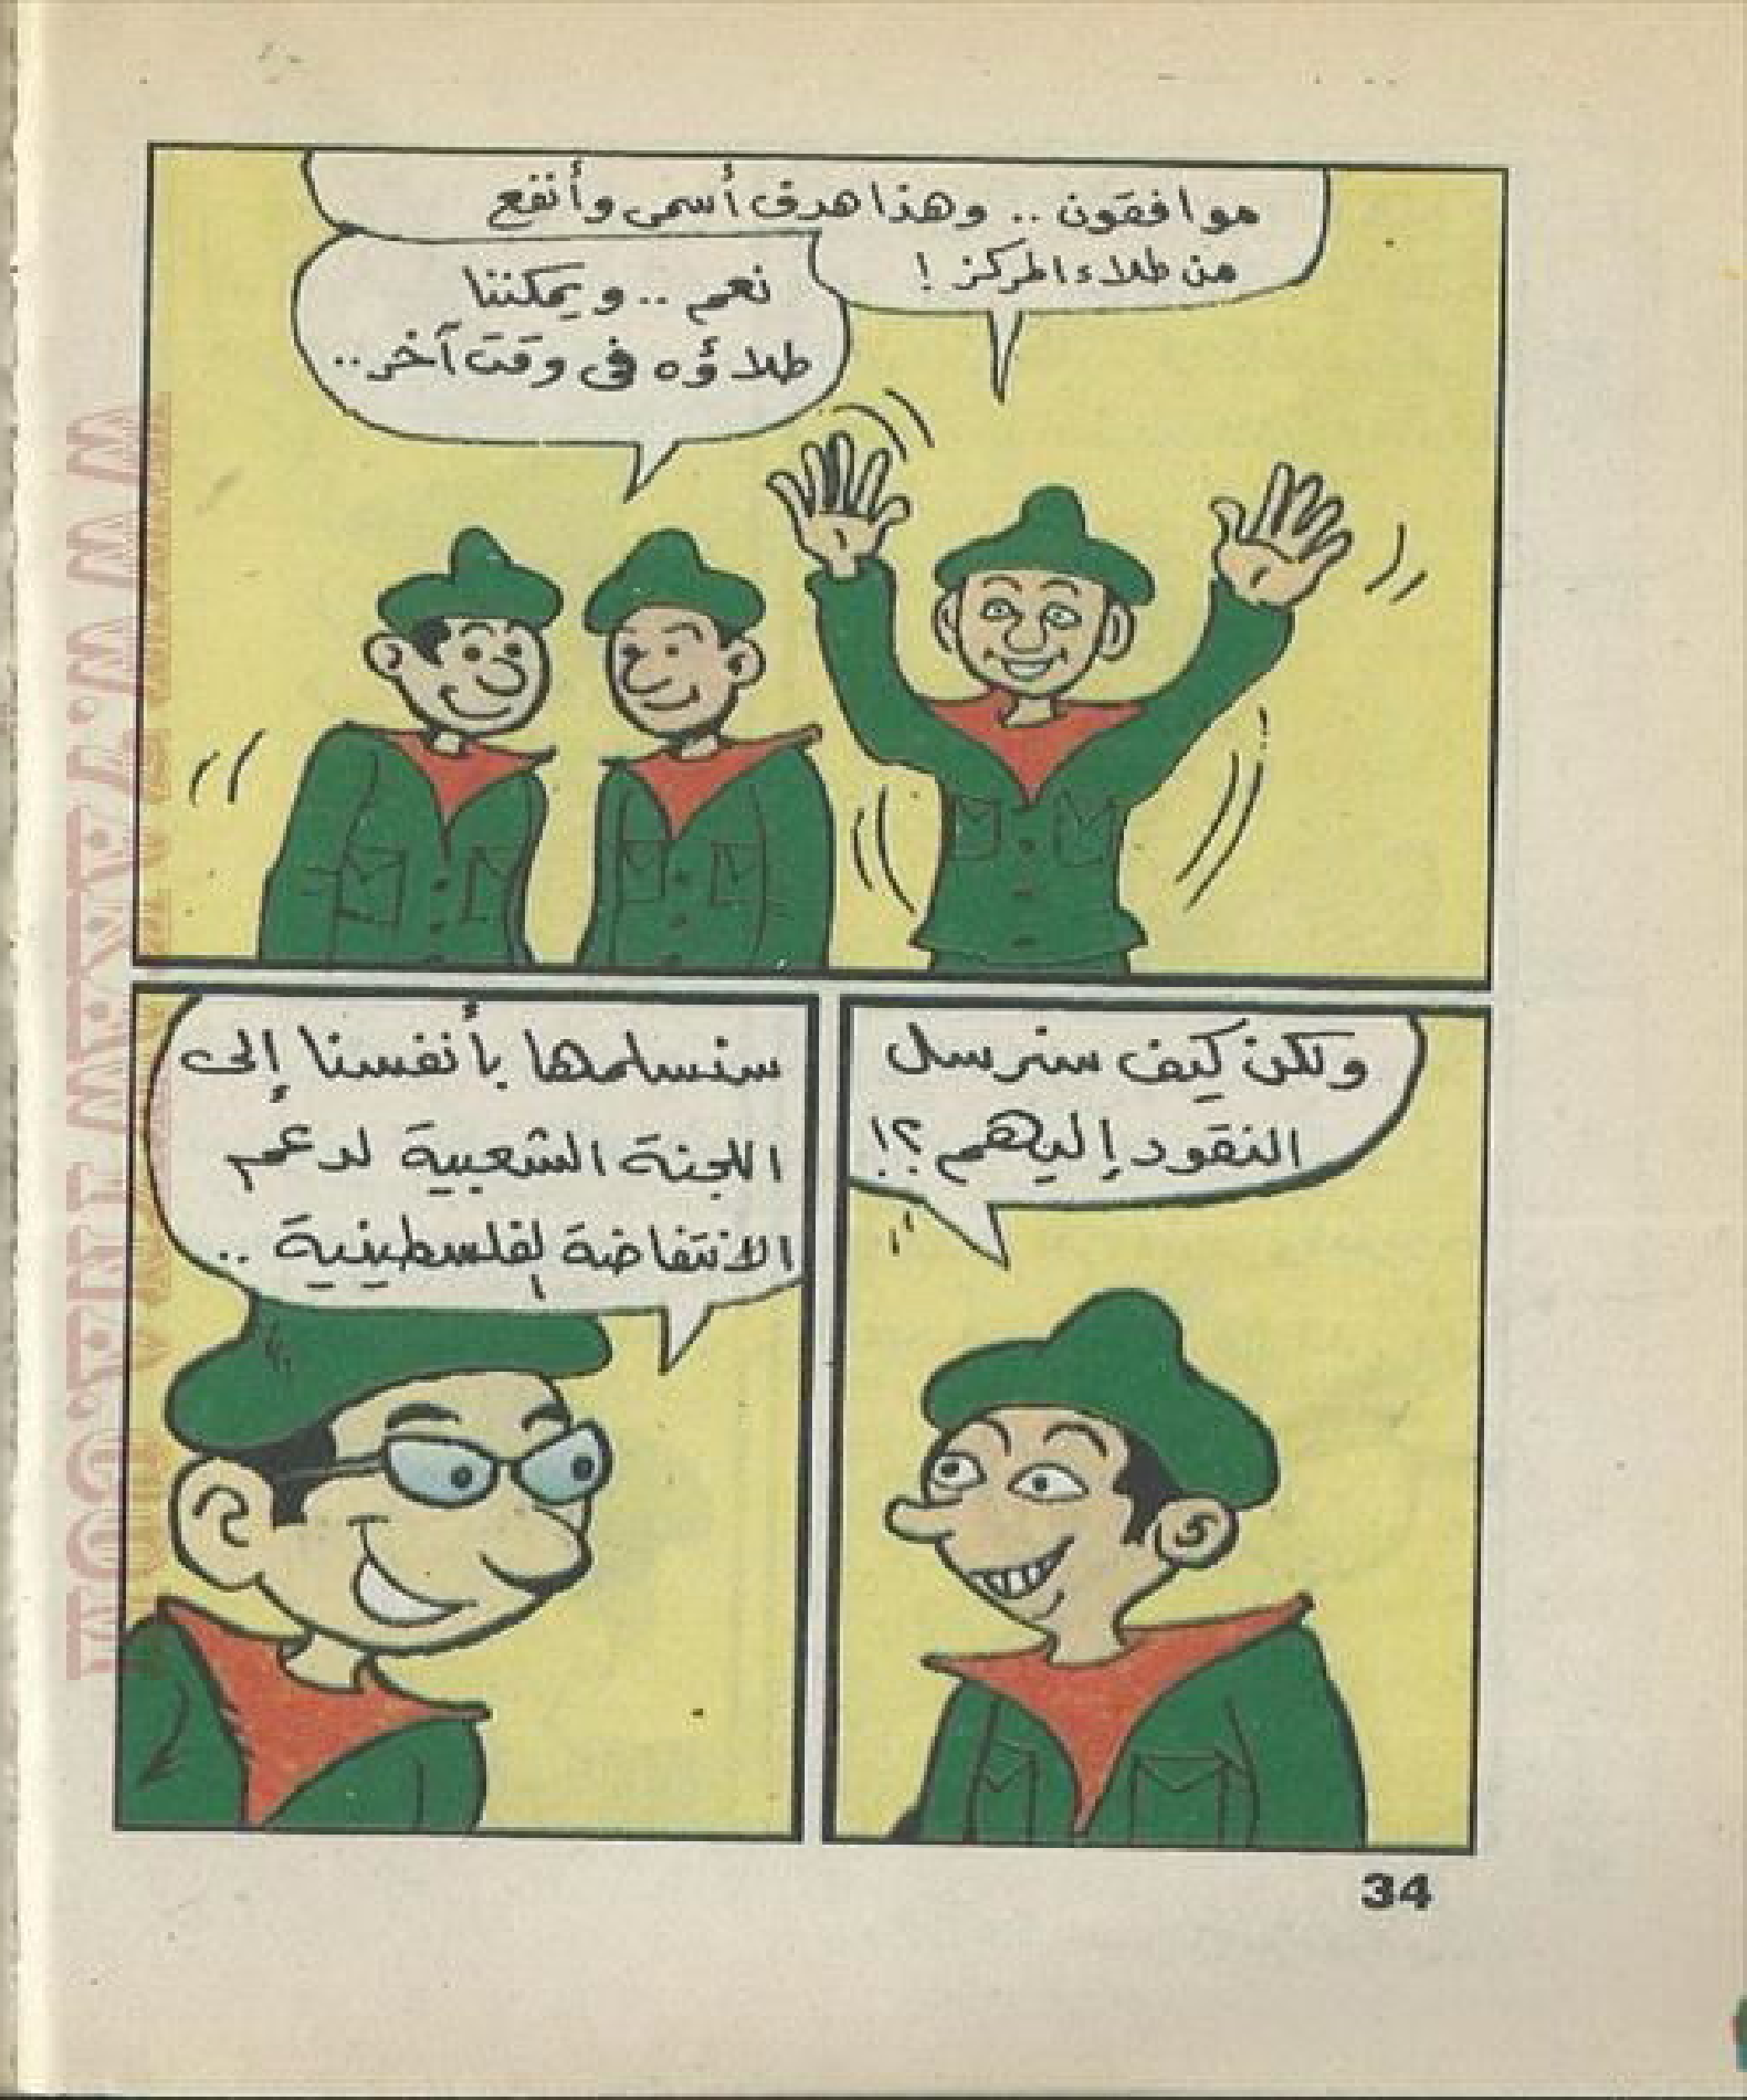 موافقون .. وهذا هدف أسمى وأنفع
من طلاء المركز !
نعم .. ويمكننا
طلاؤه فى وقت آخر ..
ولكن كيف سنرسل
النقود إليهم ؟!
سنسلمها بأنفسنا إلى
اللجنة الشعبية لدعم
الانتفاضة الفلسطينية ..
34